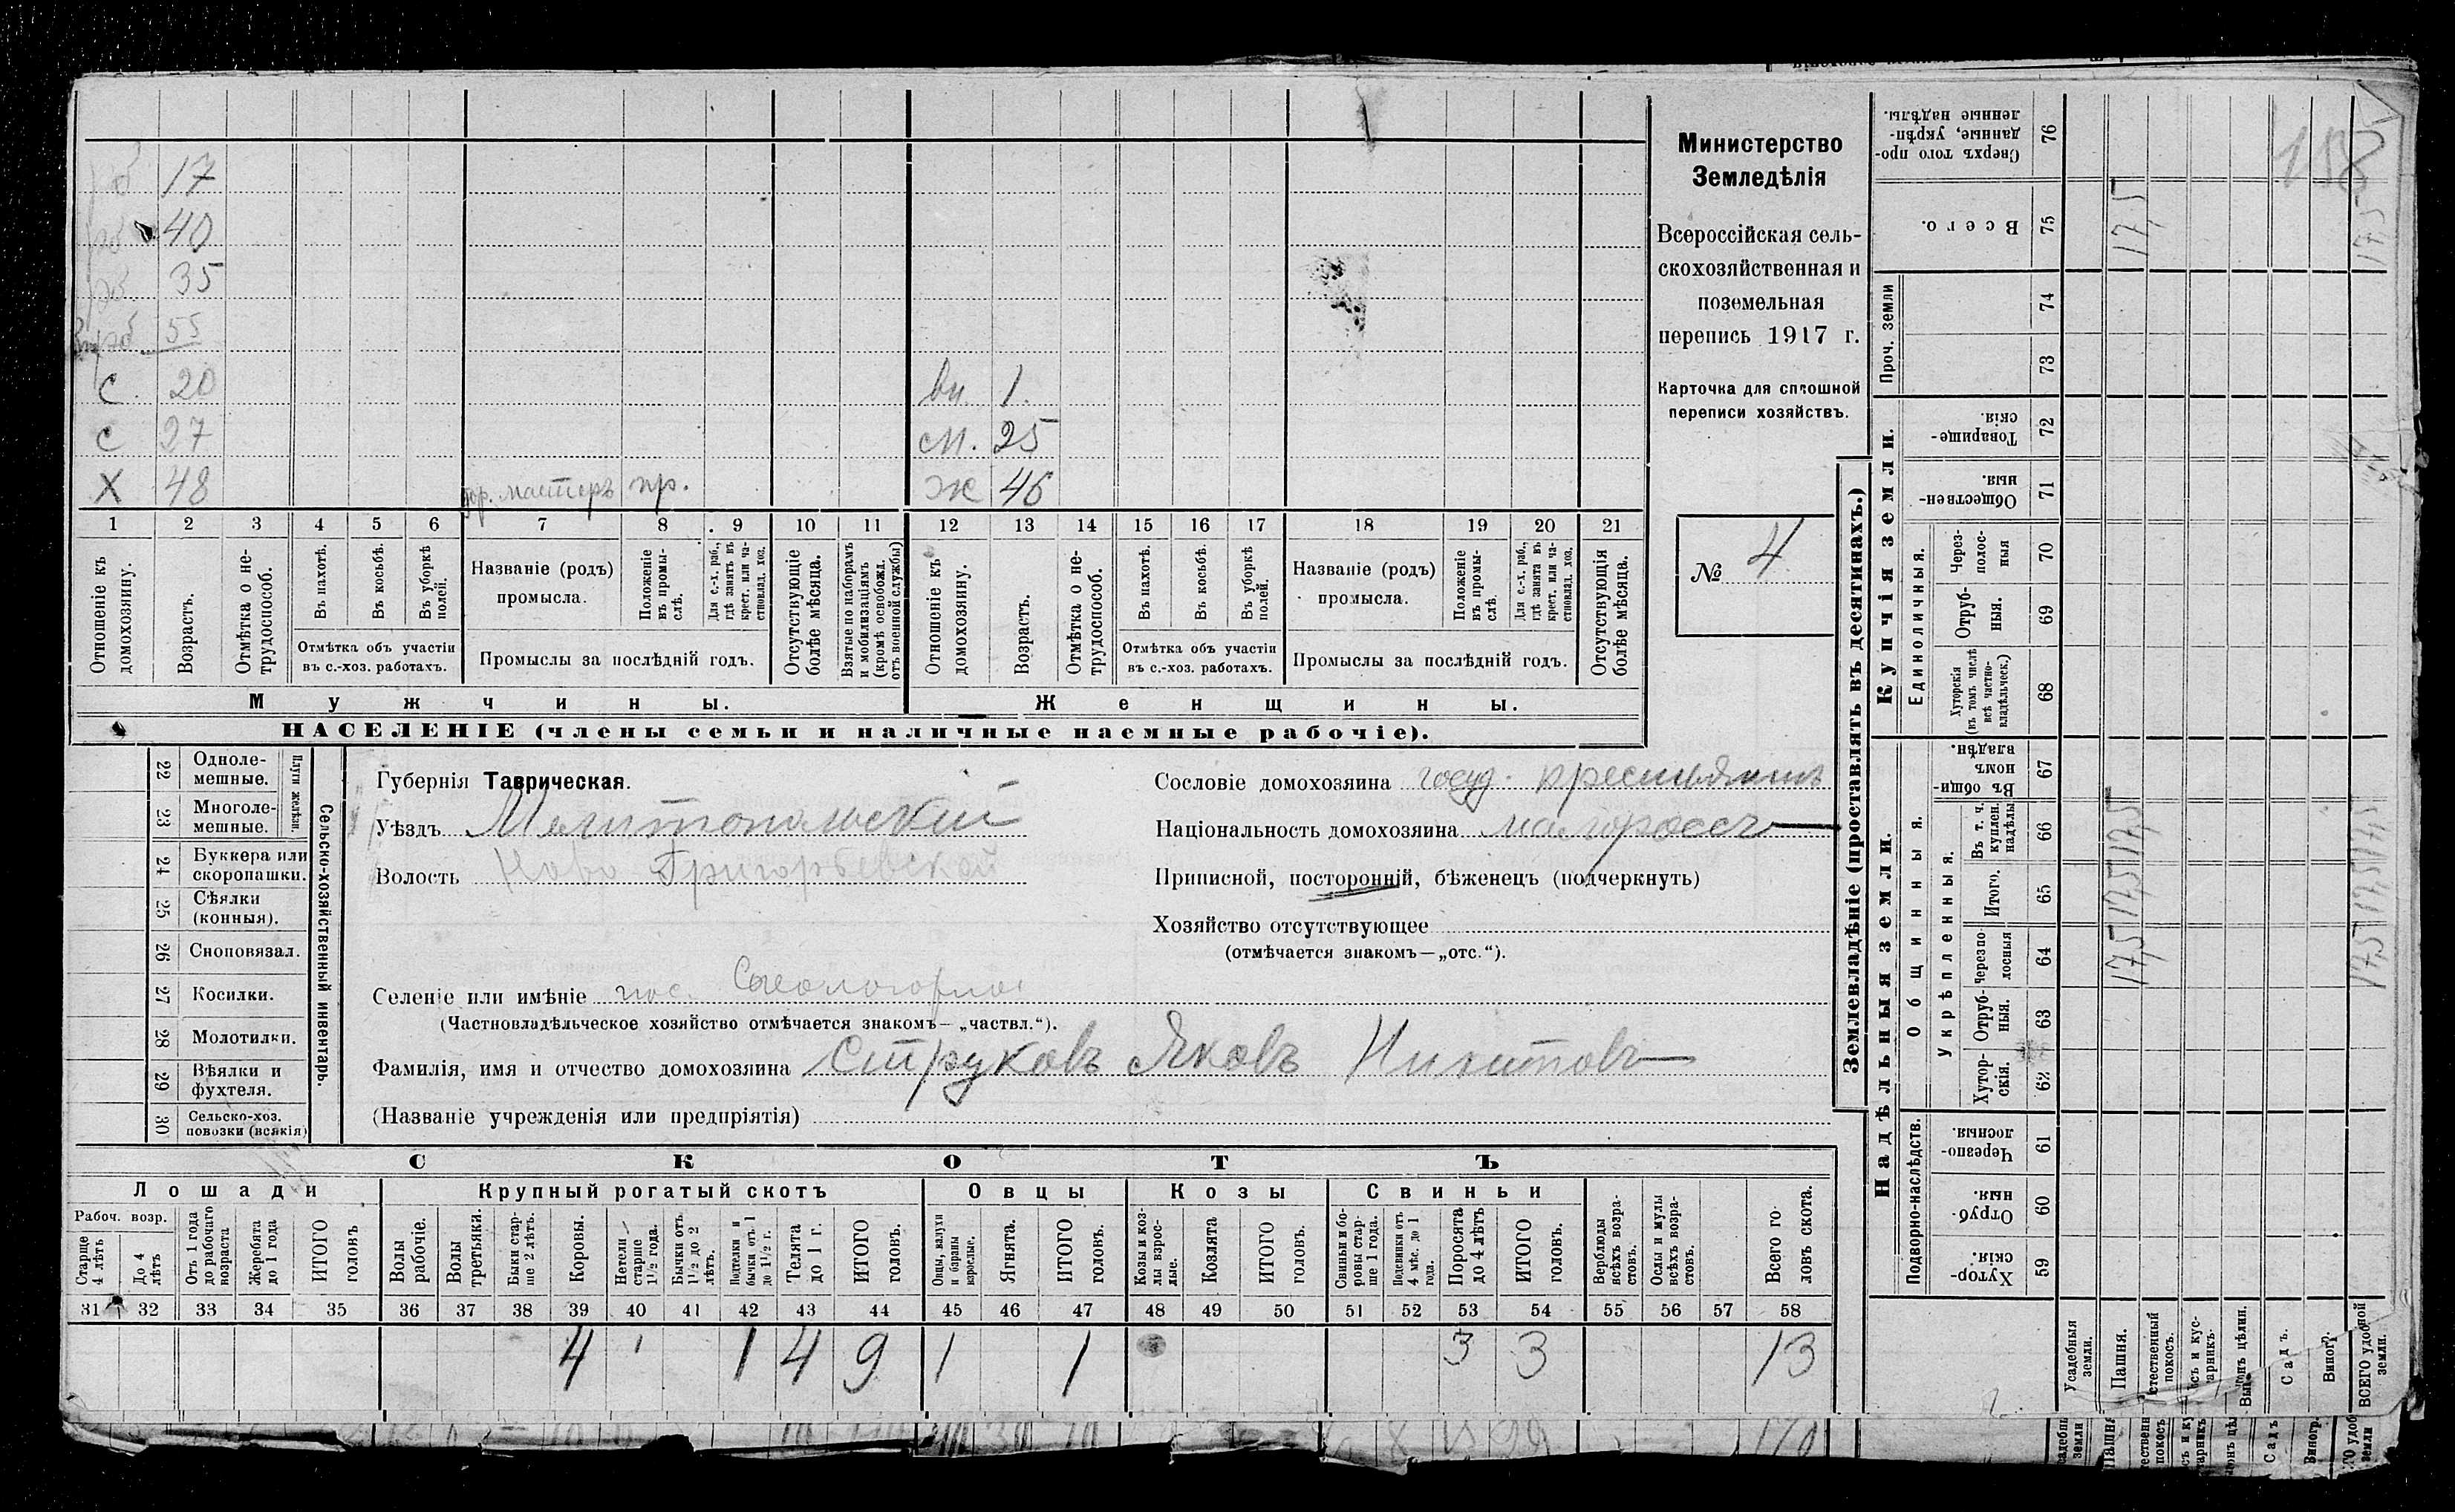 17
40
35
55
С 20 вн. 1
С 27 сн. 25
Х 48 гор. мастеръ пр. ж 46
1 2 3 4 5 6 7 8 9 10 11 12 13 14 15 16 17 18 19 20 21
Отношеніе къ домохозяину.
Возрастъ.
Отмѣтка о не-трудоспособ.
Въ пахотѣ.
Въ косьбѣ.
Въ уборкѣ полей.
Отмѣтка объ участіи
въ с.-хоз. работахъ.
Названіе (родъ)
промысла.
Положеніе въ промы-слѣ.
Для с.-х. раб., гдѣ занятъ въ крест. или ча-стновлад. хоз.
Промыслы за послѣдній годъ.
Отсутствующіе болѣе мѣсяца.
Взятые по наборамъ и мобилизаціямъ (кромѣ освобожд. отъ военной службы)
Отношеніе къ домохозяину.
Возрастъ.
Отмѣтка о не-трудоспособ.
Въ пахотѣ.
Въ косьбѣ.
Въ уборкѣ полей.
Отмѣтка объ участіи
въ с.-хоз. работахъ.
Названіе (родъ)
промысла.
Положеніе въ промы-слѣ.
Для с.-х. раб., гдѣ занята въ крест. или ча-стновлад. хоз.
Промыслы за послѣдній годъ.
Отсутствующія болѣе мѣсяца.
Мужчины.
Женщины.
НАСЕЛЕНІЕ (члены семьи и наличные наемные рабочіе).
Министерство
Земледѣлія
Всероссійская сель-
скохозяйственная и
поземельная
перепись 1917 г.
Карточка для сплошной
переписи хозяйствъ.
№ 4
22 Одноле-мешные.
23 Многоле-мешные.
Плуги желѣзн.
24 Буккера или скоропашки.
25 Сѣялки (конныя).
26 Сноповязал.
27 Косилки.
28 Молотилки.
29 Вѣялки и фухтеля.
30 Сельско-хоз. повозки (всякія)
Сельско-хозяйственный инвентарь.
Губернія Таврическая.
Уѣздъ Мелитопольскій
Волость Ново Григорьевской
Селеніе или имѣніе пос.
(Частновладѣльческое хозяйство отмѣчается знакомъ — „частвл.“).
Фамилія, имя и отчество домохозяина Струковъ Яковъ Никитовъ
(Названіе учрежденія или предпріятія)
Сословіе домохозяина госуд. крестьянинъ
Національность домохозяина малороссъ
Приписной, посторонній, бѣженецъ (подчеркнуть)
Хозяйство отсутствующее
(отмѣчается знакомъ — „отс.“).
СКОТЪ
Лошади
Крупный рогатый скотъ
Овцы
Козы
Свиньи
Рабоч. возр.
Старше 4 лѣтъ
До 4 лѣтъ
Отъ 1 года до рабочаго возраста
Жеребята до 1 года
ИТОГО головъ
Волы рабочіе.
Волы третьяки.
Быки стар-ше 2 лѣтъ.
Коровы.
Нетели старше 1½ года.
Бычки отъ 1½ до 2 лѣтъ.
Подтелки и бычки отъ 1 до 1½ г.
Телята до 1 г.
ИТОГО головъ.
Овцы, валухи и бараны взрослые.
Ягнята.
ИТОГО головъ.
Козы и коз-лы взрос-лые.
Козлята
ИТОГО головъ.
Свиньи и бо-ровы стар-ше 1 года.
Подсвинки отъ 4 мѣс. до 1 года.
Поросята до 4 лѣтъ
ИТОГО головъ.
Верблюды всѣхъ возра-стовъ.
Ослы и мулы всѣхъ возра-стовъ.
Всего го-ловъ скота.
31 32 33 34 35 36 37 38 39 40 41 42 43 44 45 46 47 48 49 50 51 52 53 54 55 56 57 58
4 1 1 4 9 1 1 3 3 13
Землевладѣніе (проставлять въ десятинахъ.)
Купчія земли.
Надѣльныя земли.
Сверхъ того про-данные, укрѣп-ленные надѣлы. 76
Всего. 75
Проч. земли 74 73
Товарище-скія. 72
Обществен-ныя. 71
Единоличныя.
Через-полос-ныя 70
Отруб-ныя. 69
Хуторскія (въ томъ числѣ всѣ частно-владѣльческ.) 68
Общинныя.
Въ общи-номъ владѣн. 67
Укрѣпленныя.
Въ т. ч. куплен. надѣлы 66
Итого. 65
Черезпо-лосныя 64
Отруб-ныя. 63
Хутор-скія. 62
Подворно-наслѣдств.
Черезпо-лосныя. 61
Отруб-ныя 60
Хутор-скія. 59
17,5
17,5 17,5 17,5
158
17,5
17,5 17,5 17,5
Усадебныя земли.
Пашня.
Сад ъ.
Виногр.
ВСЕГО удобной земли.